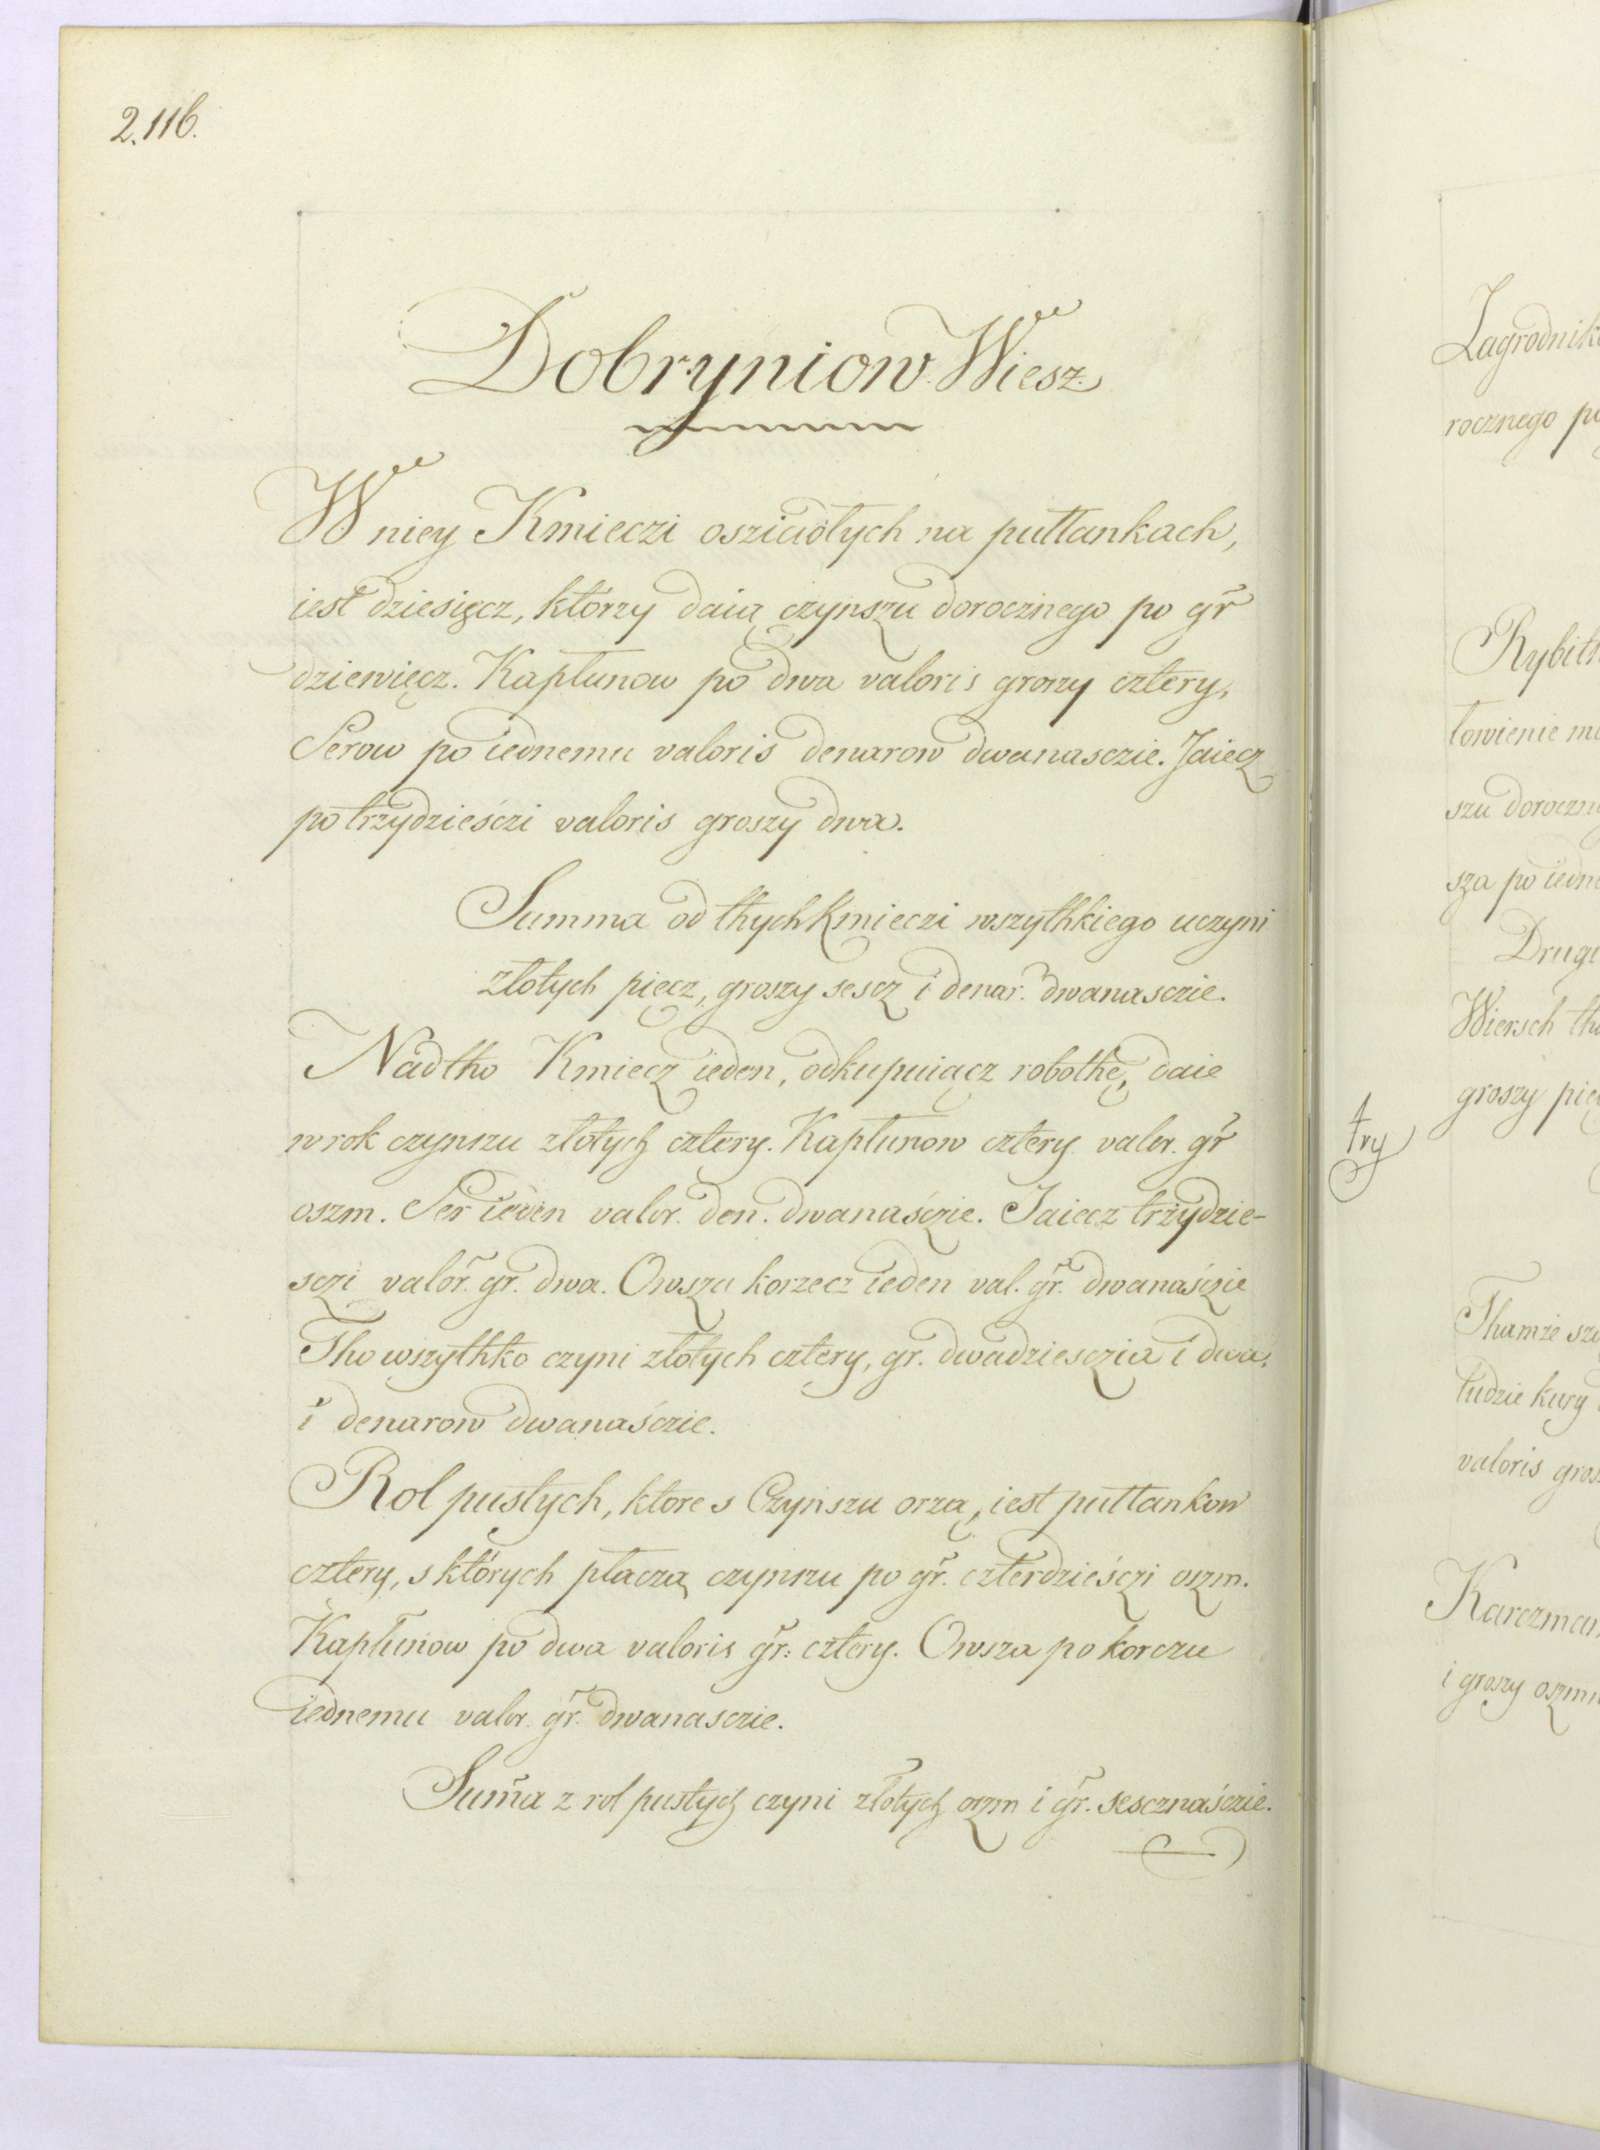 2.116.
Dobryniow Wiesz
W niey Kmieczi osziadłych na pułłankach,
iest dziesięcz, którzy daią czynszu dorocznego po gr
dziewięcz. Kapłunow po dwa valoris groszy cztery,
Serow po iednemu valoris denarow dwanasczie. Jaiecz
po trzydzieśczi valoris groszy dwa.
Summa od thych Kmieczi wszythkiego uczyni
złotych pięcz, groszy sescz i denar. dwanasczie.
Nadtho Kmiecz ieden, odkupuiącz robothę, daie
w rok czynszu złotych cztery. Kapłunow cztery valor. gr
oszm. Ser ieden valor. den. dwanaśczie. Jaiecz trzydzie-
sczi valor. gr. dwa. Owszu korzecz ieden val. gr. dwanaśczie
Tho wszythko czyni złotych cztery, gr. dwadziesczia i dwa,
i denarow dwanaśczie.
Rol pustych, ktore s Czynszu orzą, iest pułłankow
cztery, s których płaczą czynszu po gr. czterdzieśczi oszm.
Kapłunow po dwa valoris gr: cztery. Owsza po korczu
iednemu valor. gr. dwanasczie.
Suma z rol pustych czyni złotych oszm i gr. sescznaśczie.
Zagrodnik
rocznego
Rybith
łowienie
szu doroczn
sza po iedne
Drugi
Wiersch
groszy pię
try
Thamże
ludzie kury
valoris gros
Karczmar
i groszy oszm